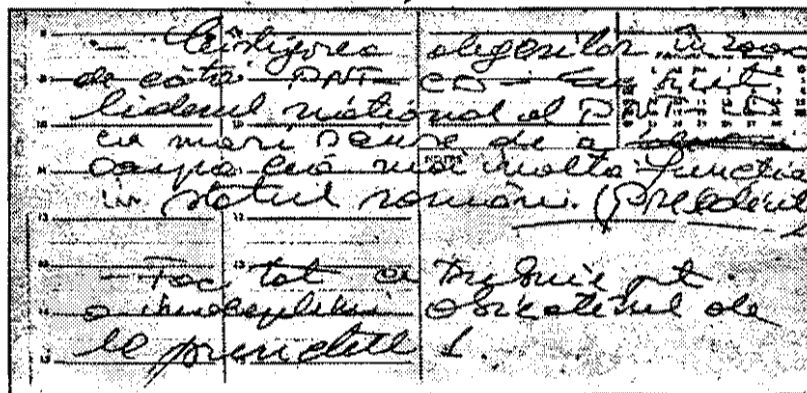 - Câștigarea alegerilor în 2000
de către PNȚ-CD - Eu sunt
liderul național al PNȚ-CD
cu mari șanse de a
ocupa cea mai înaltă funcție
în statul român. (președinte
- Fac tot ce trebuie pt.
a îndeplini obiectivul de
la punctul 1.